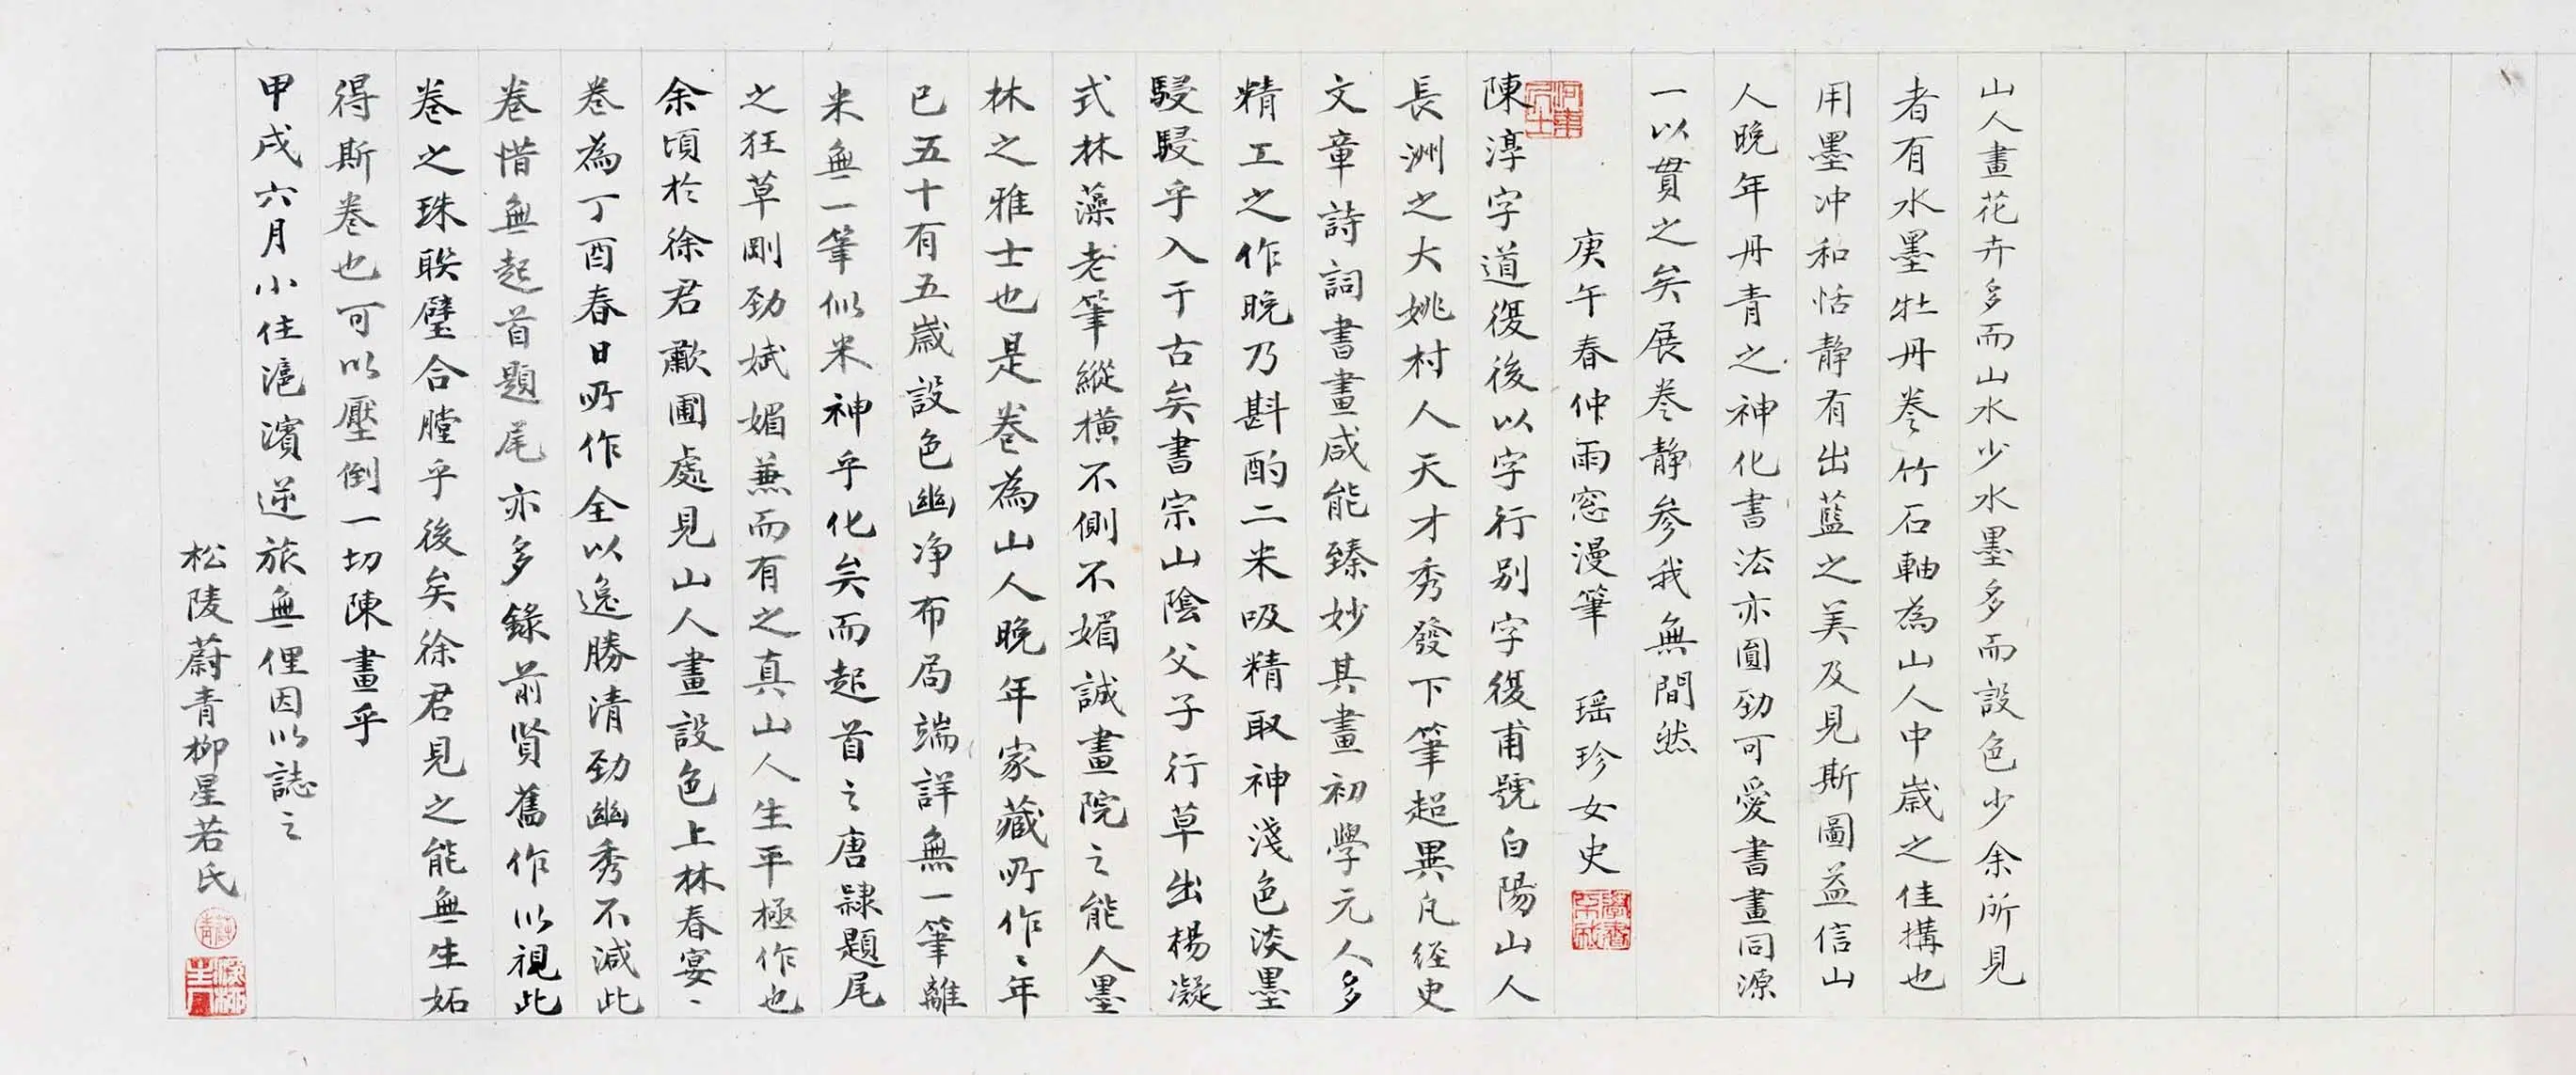 山人畫花卉多而山水少水墨多而設色少余所見
者有水墨牡丹卷竹石軸為山人中歲之佳搆也
用墨冲和恬靜有出藍之美及見斯圖益信山
人晚年丹青之神化書法亦圓勁可愛書畫同源
一以貫之矣展卷靜參我無間然
庚午春仲雨窓漫筆 瑶珍女史
陳淳字道復後以字行別字復甫號白陽山人
長洲之大姚村人天才秀發下筆超異凡經史
文章詩詞書畫咸能臻妙其畫初學元人多
精工之作晚乃斟酌二米吸精取神淺色淡墨
駸駸乎入于古矣書宗山陰父子行草出楊凝
式林藻老筆縱橫不側不媚誠畫院之能人墨
林之雅士也是卷為山人晚年家藏所作〻年
已五十有五歲設色幽净布局端詳無一筆離
米無一筆似米神乎化矣而起首之唐隸題尾
之狂草剛勁娬媚兼而有之真山人生平極作也
余頃於徐君蘄圃處見山人畫設色上林春宴〻
卷為丁酉春日所作全以逸勝清勁幽秀不減此
卷惜無起首題尾亦多錄前賢舊作以視此
卷之珠聯璧合膛乎後矣徐君見之能無生妬
得斯卷也可以壓倒一切陳畫乎
甲戌六月小住滬濱逆旅無俚因以誌之
松陵蔚青柳星若氏